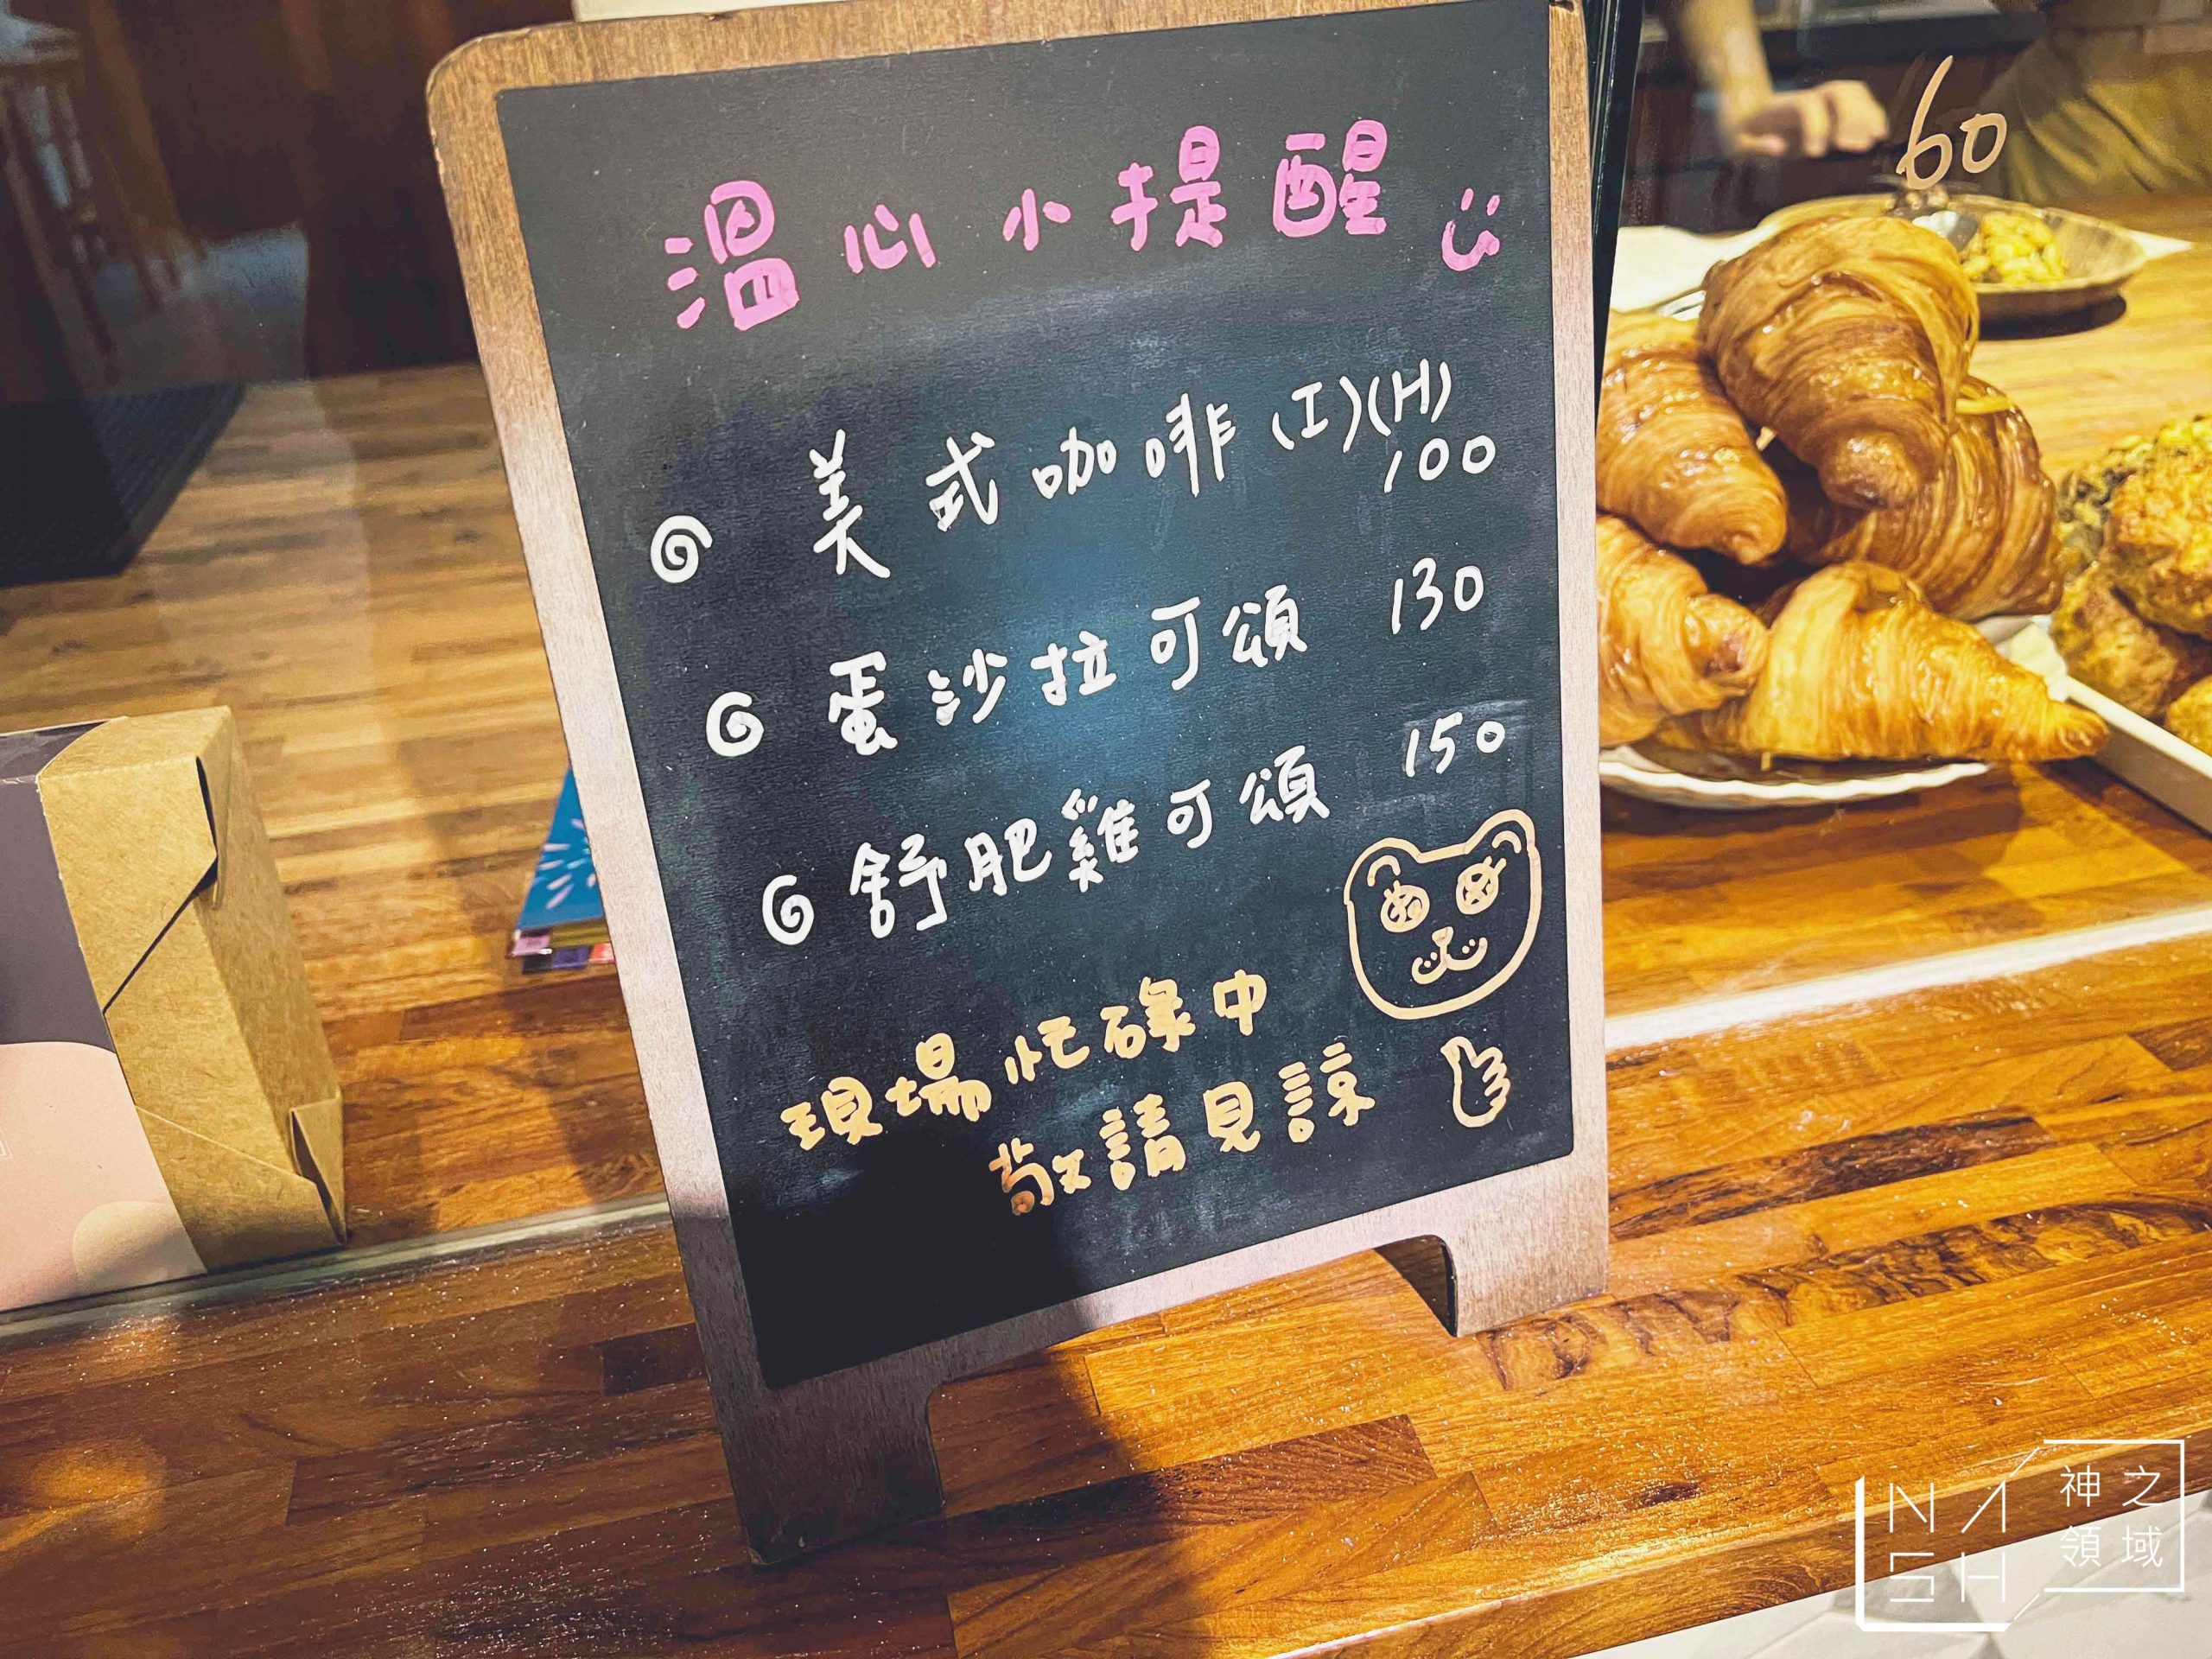 溫心小提醒
美式咖啡 (I)(H)
100
蛋沙拉可頌 130
舒肥雞可頌 150
現場忙碌中
敬請見諒
60
NASH
神之
領域